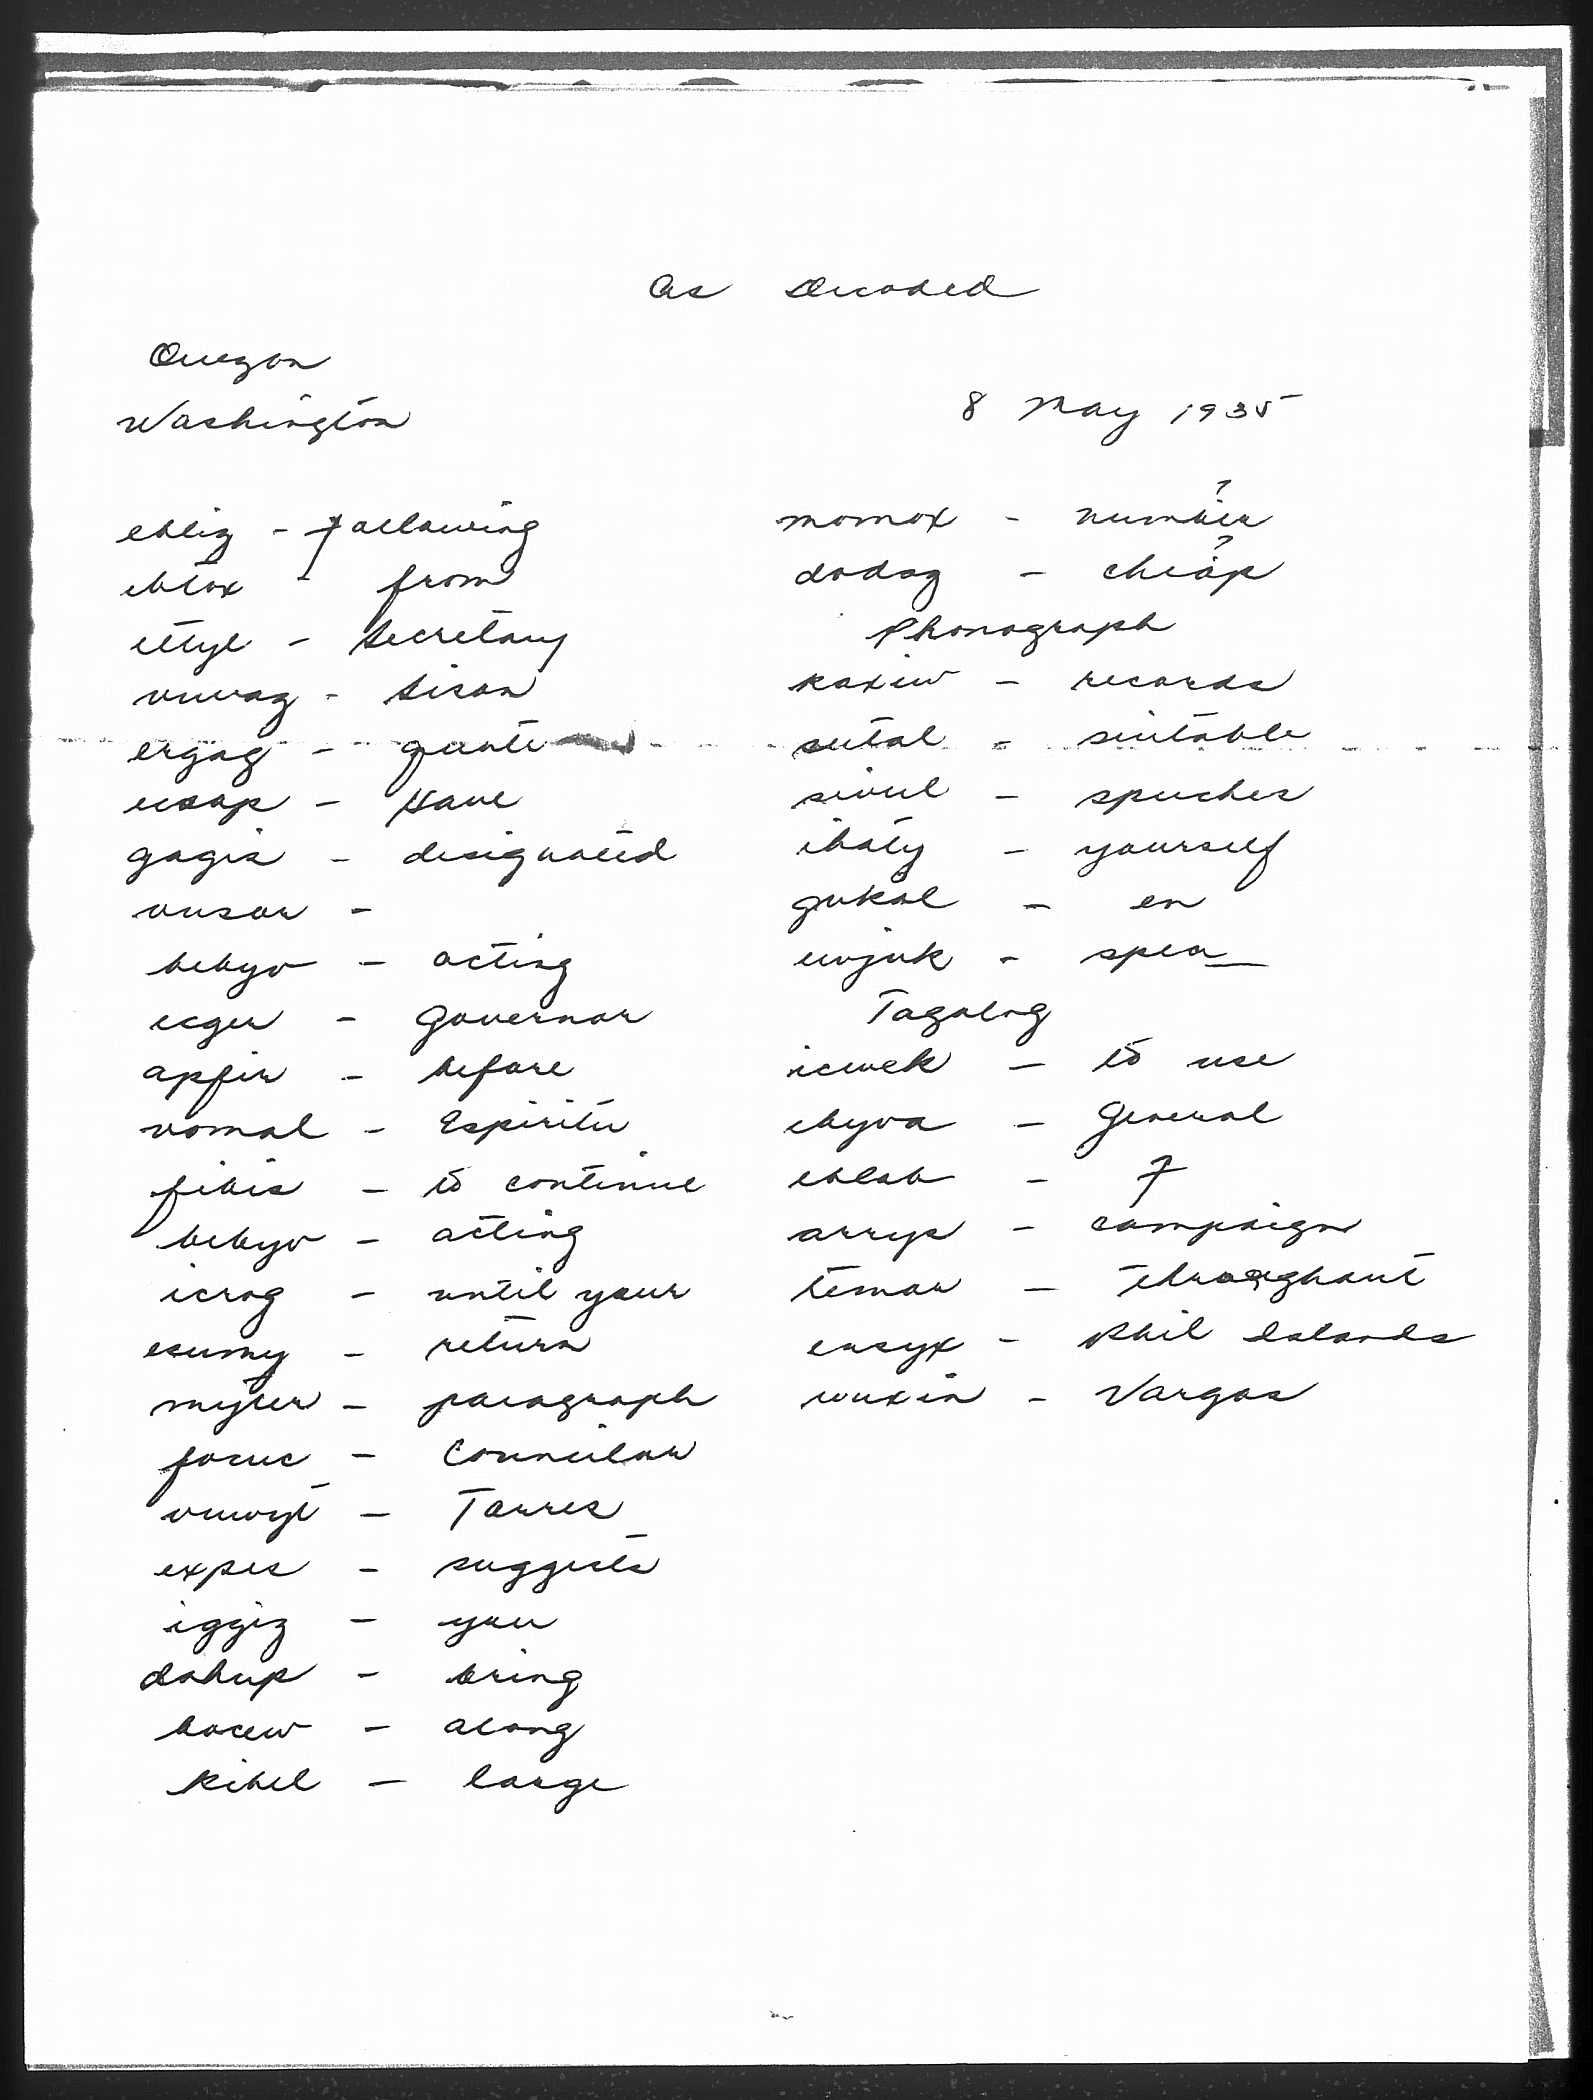 As Decoded
Quezon
Washington
8 May 1935
ebliz - following
eblox - from
ettyl - Secretary
vuvag - Sison
ergag - quote
eusap - have
gagis - designated
vusar -
bebyv - acting
ecger - Governor
apfir - before
vomal - Espiritu
fibis - to continue
bebyv - acting
icrog - until your
esumy - return
myter - paragraph
focuc - Councilor
vuwyt - Torres
expes - suggests
iggiz - you
dahup - bring
bocew - along
kibel - large
?
momox - number
?
dodog - cheap
Phonograph
raxiw - records
sutal - suitable
sivul - speeches
ibaty - yourself
gukal - en
uvjuk - spea_
Tagalog
icwek - to use
ebyva - General
eblab - 7
arryp - campaign
temor - throughout
ensyx - Phil Islands
wuxin - Vargas